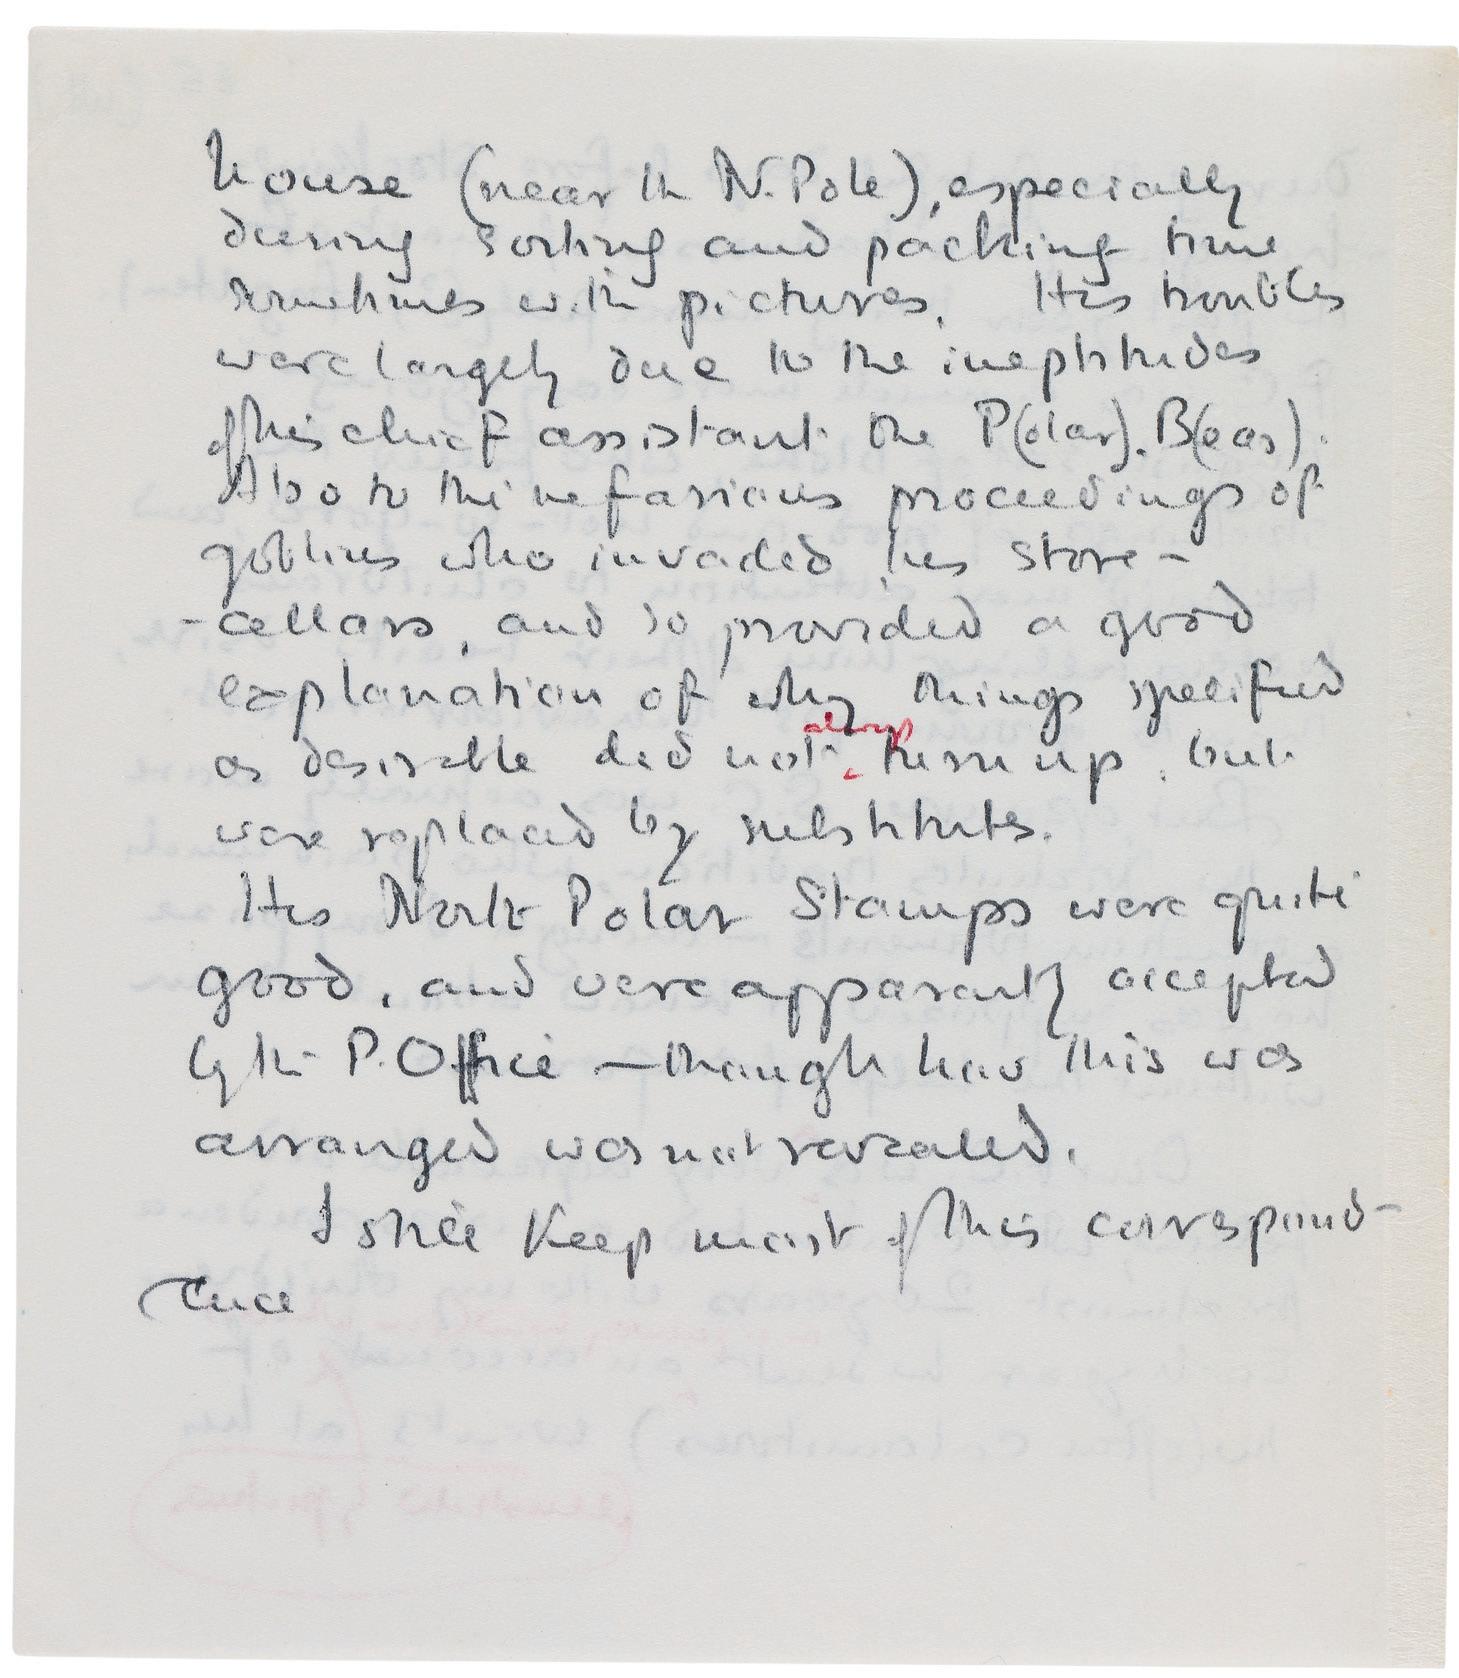 house (near the N. Pole), especially
during sorting and packing time
sometimes with pictures. His troubles
were largely due to the ineptitudes
of his chief assistant the P(olar). B(ear).
Also to the nefarious proceedings of
goblins who invaded his store-
-cellars, and so provided a good
explanation of why things specified
always
as desirable did not turn up, but
were replaced by substitutes.
His North Polar Stamps were quite
good, and were apparently accepted
by the P. Office — though how this was
arranged was not revealed.
I still keep most of this correspond-
ence